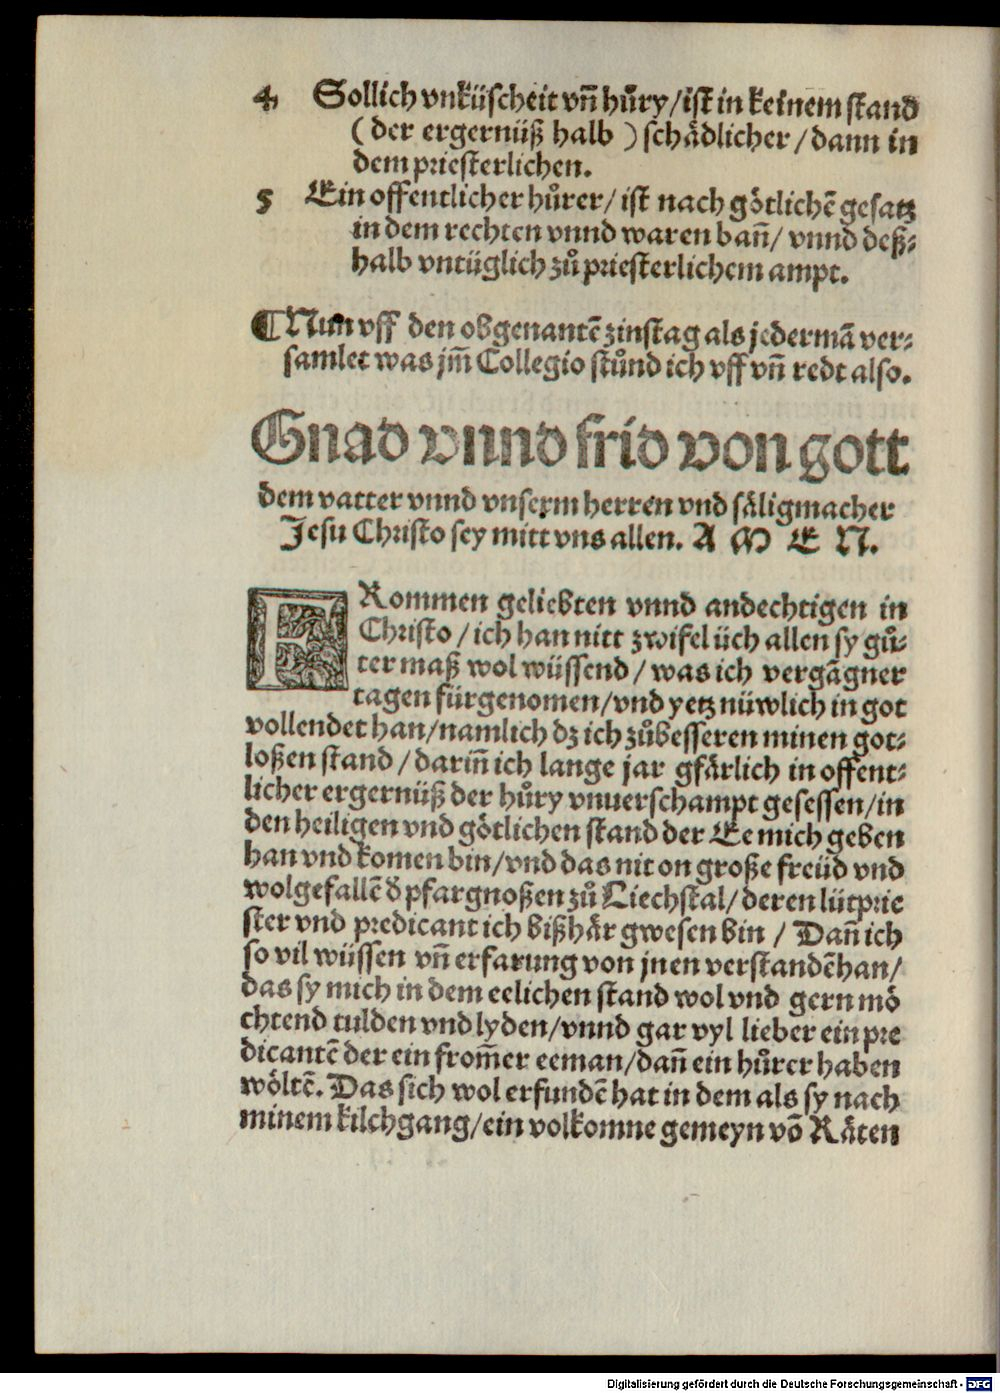 4 Sollich vnküscheit vñ hůry/ist in keinem stand
(der ergernüß halb) schådlicher/dann in
dem priesterlichen.
5 Ein offentlicher hůrer/ist nach gőtlichē gesatz
in dem rechten vnnd waren bañ/vnnd deß⸗
halb vntüglich zů priesterlichem ampt.
¶Nun vff den obgenantē zinstag als jedermā ver⸗
samlet was jm̄ Collegio stůnd ich vff vñ redt also.
Gnad vnnd frid von gott
dem vatter vnnd vnserm herren vnd såligmacher
Jesu Christo sey mitt vns allen. A M E N.
FRommen geliebten vnnd andechtigen in
Christo/ich han nitt zwifel üch allen sy gů⸗
ter maß wol wüssend/was ich vergāgner
tagen fürgenomen/vnd yetz nüwlich in got
vollendet han/namlich dz ich zůbesseren minen got⸗
loßen stand/dariñ ich lange jar gfårlich in offent⸗
licher ergernüß der hůry vnuerschampt gesessen/in
den heiligen vnd gőtlichen stand der Ee mich geben
han vnd komen bin/vnd das nit on große freüd vnd
wolgefallē d̄ pfargnoßen zů Liechstal/deren lütprie
ster vnd predicant ich bißhår gwesen bin/Dañ ich
so vil wüssen vñ erfarung von jnen verstandēhan/
das sy mich in dem eelichen stand wol vnd gern mő
chtend tulden vnd lyden/vnnd gar vyl lieber ein pre
dicantē der ein from̄er eeman/dañ ein hůrer haben
wőltē. Das sich wol erfundē hat in dem als sy nach
minem kilchgang/ein volkomne gemeyn vō Råten
Digitalisierung gefördert durch die Deutsche Forschungsgemeinschaft - DFG